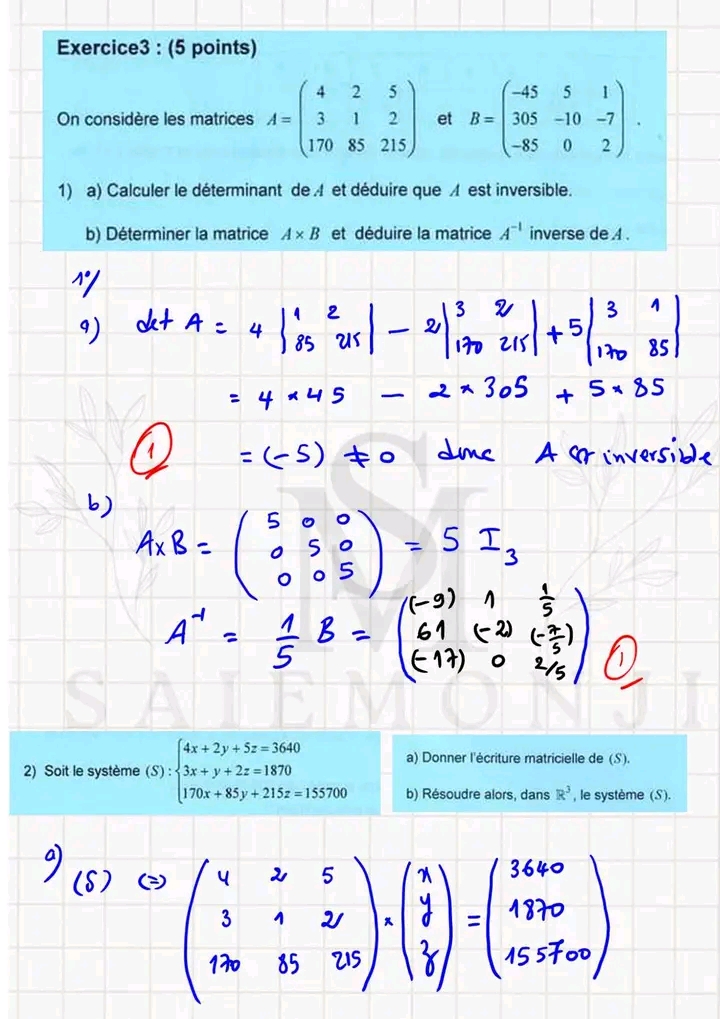 Exercice3 : (5 points)
On considère les matrices A = ( 4 2 5 ; 3 1 2 ; 170 85 215 ) et B = ( -45 5 1 ; 305 -10 -7 ; -85 0 2 ) .
1) a) Calculer le déterminant de A et déduire que A est inversible.
b) Déterminer la matrice A × B et déduire la matrice A⁻¹ inverse de A .
1°/
a) det A = 4 | 1 2 ; 85 215 | - 2 | 3 2 ; 170 215 | + 5 | 3 1 ; 170 85 |
= 4 × 45 - 2 × 305 + 5 × 85
① = (-5) ≠ 0 donc A est inversible
b)
A × B = ( 5 0 0 ; 0 5 0 ; 0 0 5 ) = 5 I₃
A⁻¹ = 1/5 B = ( (-9) 1 1/5 ; 61 (-2) (-7/5) ; (-17) 0 2/5 ) ①
SM
SALEMONJI
2) Soit le système (S) : { 4x + 2y + 5z = 3640
3x + y + 2z = 1870
170x + 85y + 215z = 155700
a) Donner l'écriture matricielle de (S).
b) Résoudre alors, dans ℝ³, le système (S).
a) (S) ⇔ ( 4 2 5 ; 3 1 2 ; 170 85 215 ) × ( x ; y ; z ) = ( 3640 ; 1870 ; 155700 )